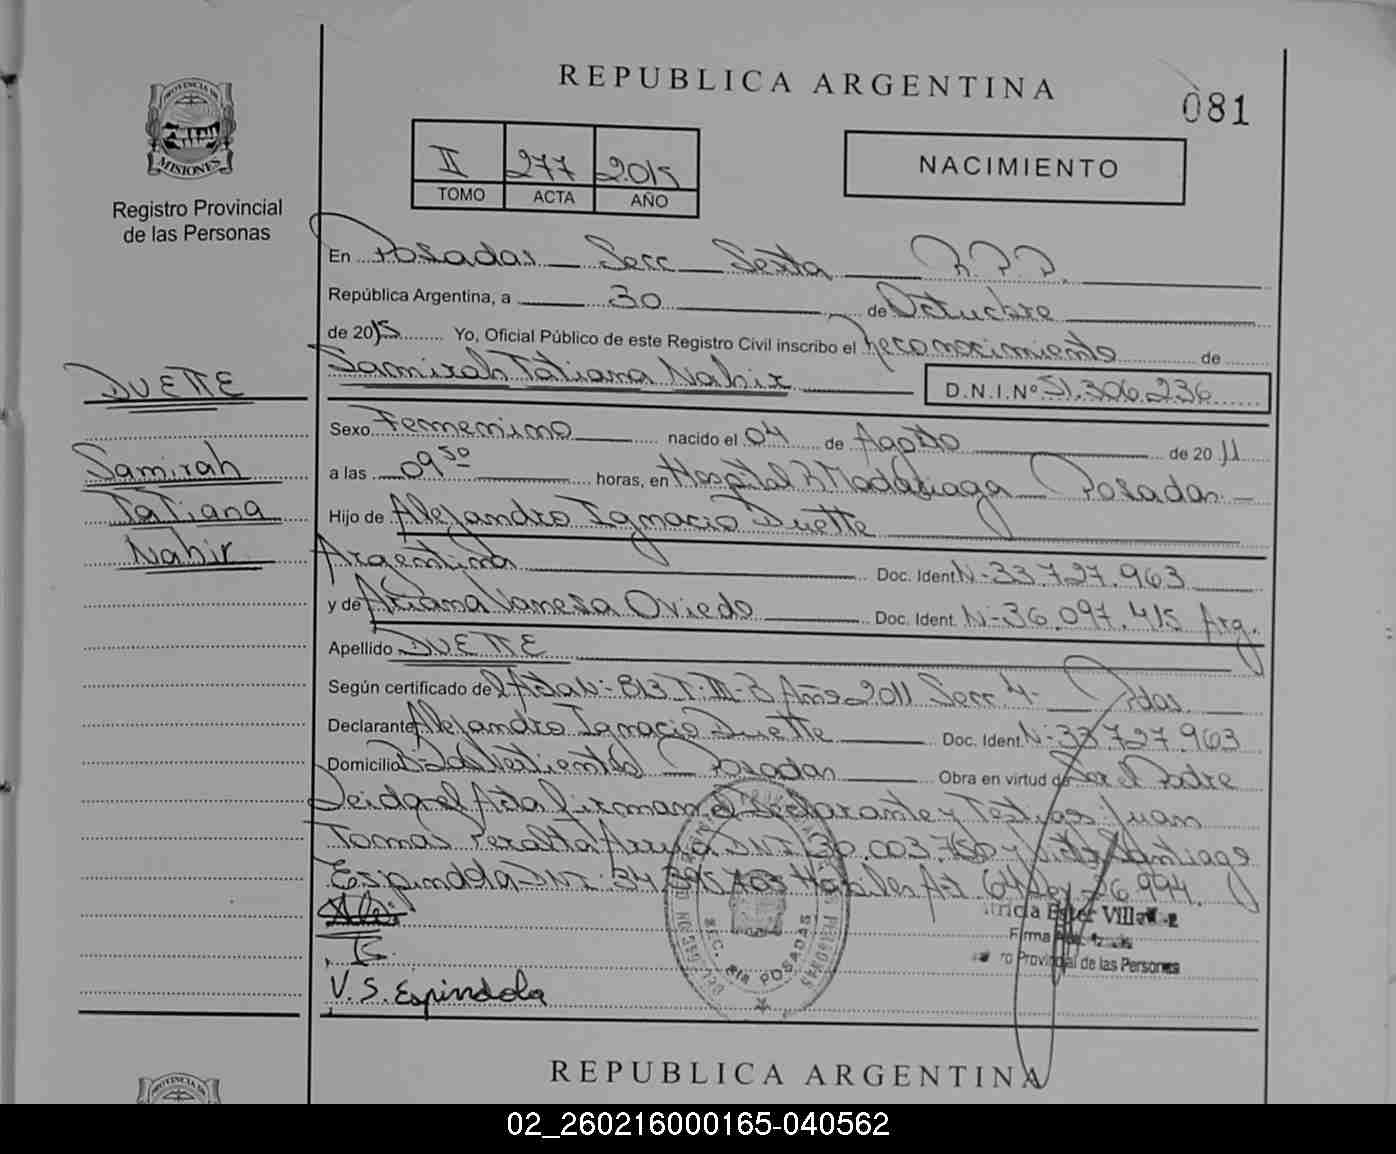 REPUBLICA ARGENTINA
081
PROVINCIA DE
MISIONES
Registro Provincial
de las Personas
II 277 2015
TOMO ACTA AÑO
NACIMIENTO
En Posadas Secc Sexta R.P.P.
República Argentina, a 30 de Octubre
de 2015 Yo, Oficial Público de este Registro Civil inscribo el Reconocimiento de
Samirah Tatiana Nahir D.N.I.Nº 51.306.236
DUETTE
Samirah
Tatiana
Nahir
Sexo Femenino nacido el 04 de Agosto de 2011
a las 09 50 horas, en Hospital R Madariaga Posadas
Hijo de Alejandro Ignacio Duette
Argentina Doc. Ident. N- 33.727.963
y de Ariana Vanesa Oviedo Doc. Ident. N- 36.097.415 Arg.
Apellido DUETTE
Según certificado de Acta N- 813 T- III-B Año 2011 Secc 4- Pdas.
Declarante Alejandro Ignacio Duette Doc. Ident. N- 33.727.963
Domicilio Posadas Obra en virtud de Ser el Padre
Leida el Acta firman el Declarante y Testigos Juan
Tomas Peralta DNI 30.003.760 y Santiago
Espindola DNI Hábiles Art. 64 Ley 26.994.
V. S. Espindola
SEC. 6ta POSADAS
Ester
Firma
Provincial de las Personas
REPUBLICA ARGENTINA
02_260216000165-040562